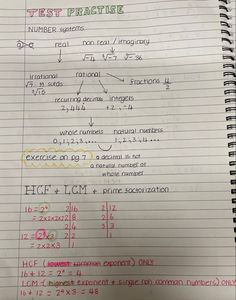 TEST PRACTISE
NUMBER systems
real non real / imaginary
√-4 √-7 √-36
irrational rational fractions
surds
recurring decimals integers
2,444 +2, -4
whole numbers natural numbers
0,1,2,3... 1,2,3,4...
exercise on pg 7 a decimal is not
a natural number or
whole number
HCF + LCM + prime factorization
16 = 2⁴ 2|16 2|12
= 2x2x2x2 2|8 2|6
2|4 3|3
12 = 2² x 3 2|2 1
= 2x2x3 1
HCF (lowest common exponent) ONLY
16 + 12 = 2² = 4
LCM (highest exponent + single non common numbers) ONLY
16 + 12 = 2⁴ x 3 = 48